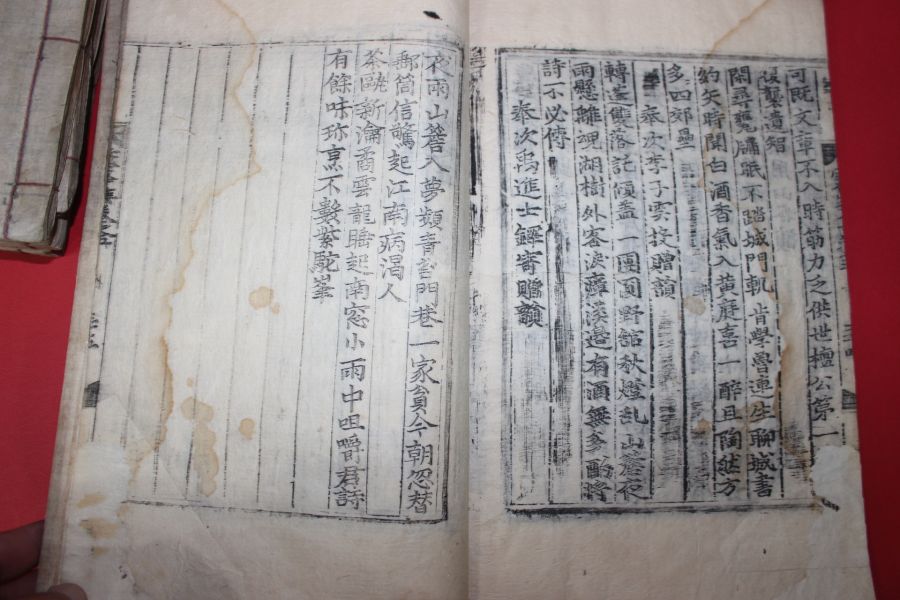 可既文章不入時筋力之供世檀公第一
復襲遺
閉尋甕牖眠不踏城門軌肯學魯連生聊城書
約矢時聞白酒香氣入黃庭喜一醉且陶然方
多四郊壘
奉次李子雲投贈韻
轉蓬落託傾盖一團圓野館秋燈乱山簷夜
雨懸離魂湖樹外客淚溪邊有酒無多酌將
詩不必傳
奉次禹進士鐸寄贈韻
夜雨山簷入夢頻青苔門巷一家貧今朝忽替
郵筒信驚起江南病渴人
茶甌新瀹矞雲龍睡起南窓小雨中咀嚼君詩
有餘味珎烹不數紫駝峯